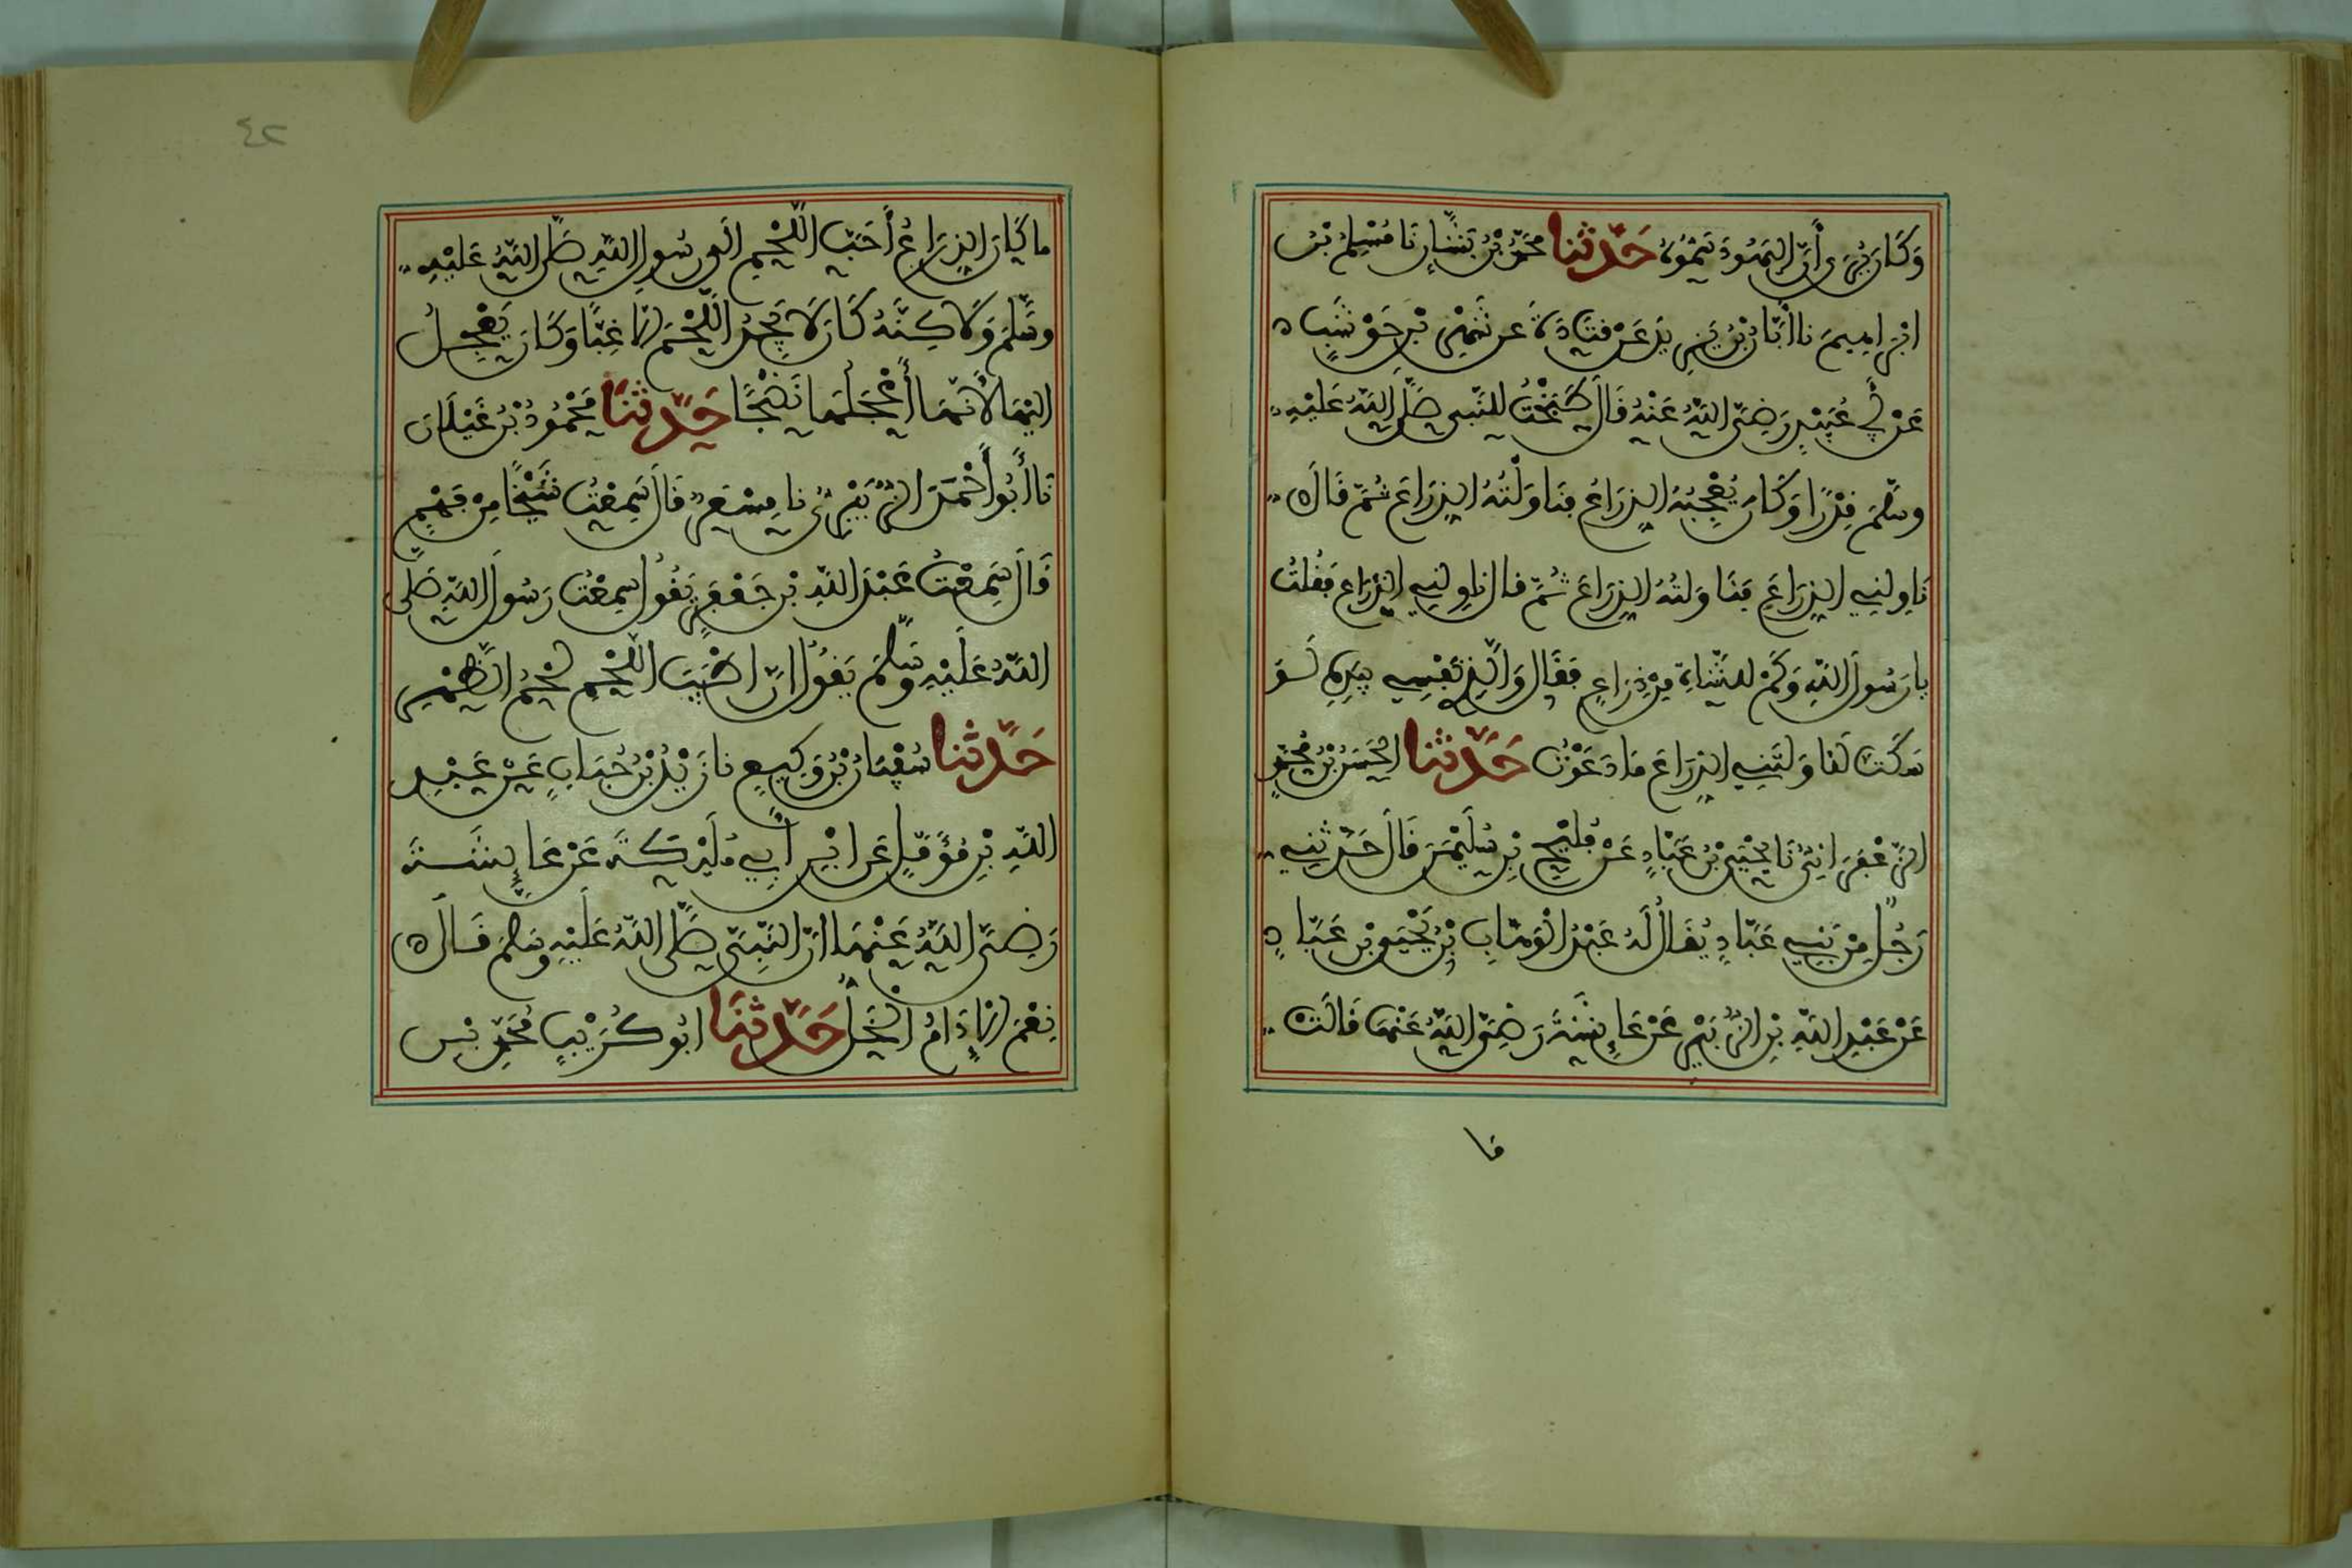 وَكَانَ يُرَى أَنَّ الْيَهُودَ سَمُّوهُ حَدَّثَنَا مُحَمَّدُ بْنُ بَشَّارٍ نَا مُسْلِمُ بْنُ
ابْرَاهِيمَ نا أَبَانُ بْنُ يَزِيدَ عَنْ قَتَادَةَ عن شَهْرِ بْنِ حَوْشَبٍ
عَنْ أَبِي عُبَيْدٍ رَضِيَ اللَّهُ عَنْهُ قَالَ طَبَخْتُ لِلنَّبِيِ صَلَّى اللَّهُ عَلَيْهِ
وسَلَّمَ قِدْرًا وَكَانَ يُعْجِبُهُ الذِرَاعُ فَنَاوَلْتُهُ الذِرَاعَ ثُمَّ قَالَ
نَاوِلْنِي الذِرَاعَ فَنَاوَلْتُهُ الذِرَاعَ ثُمَّ قال نَاوِلْنِي الذِرَاعَ فَقُلْتُ
يا رَسُولَ اللَّهِ وَكَمْ لِلشَّاةِ مِنْ ذِرَاعٍ فَقَالَ وَالَّذِي نَفْسِي بِيَدِهِ لَوْ
سَكَتَّ لَنَاوَلْتَنِي الذِرَاعَ مَا دَعَوْتُ حَدَّثَنَا الْحَسَنُ بْنُ مُحَمَّدٍ
الزَّعْفَرَانِيُّ نَا يَحْيَى بْنُ عَبَّادٍ عَنْ فُلَيْحِ بْنِ سُلَيْمَنَ قَالَ حَدَّثَنِي
رَجُلٌ مِنْ بَنِي عَبَّادٍ يُقَالُ لَهُ عَبْدُ الْوَهَّابِ بْنُ يَحْيَى بْنِ عَبَّادٍ
عَنْ عَبْدِ اللَّهِ بْنِ الزُّبَيْرِ عَنْ عَائِشَةَ رَضِيَ اللَّهُ عَنْهَا قَالَتْ
ما
٤٢
ما كَانَ الذِرَاعُ أَحَبَّ اللَّحْمِ الَى رَسُولِ اللَّهِ صَلَّى اللَّهُ عَلَيْهِ
وسَلَّمَ وَلَاكِنَّهُ كَانَ لَا يَجِدُ اللَّحْمَ إلَّا غِبًّا وَكَانَ يَعْجِلُ
الَيْهَا لأَنَّهَا أَعْجَلُهَا نُضْجًا حَدَّثَنَا مَحْمُودُ بْنُ غَيْلَانَ
نَا أَبُو أَحْمَدَ الزُّبَيْرِيُّ نا مِسْعَرٌ قَالَ سَمِعْتُ شَيْخًا مِنْ فَهْمٍ
قَالَ سَمِعْتُ عَبْدَ اللَّهِ بْنَ جَعْفَرٍ يَقُولُ سمِعْتُ رَسُولَ اللَّهِ صَلَّى
اللَّهُ عَلَيْهِ وسَلَّمَ يَقُولُ انَّ اطْيَبَ اللَّحْمِ لَحْمُ الظَّهْرِ
حَدَّثَنَا سُفْيَانُ بْنُ وَكِيعٍ نا زَيْدُ بْنُ حُبَابٍ عَنْ عَبْدِ
اللَّهِ بْنِ مُؤَمَّلٍ عَنِ ابْنِ أَبِي مُلَيْكَةَ عَنْ عَائِشَةَ
رَضِيَ اللَّهُ عَنْهَا انَّ النَّبِيَّ صَلَّى اللَّهُ عَلَيْهِ وسَلمَ قَالَ
نِعْمَ الإِدَامُ الْخَلُّ حَدَّثَنَا ابُو كُرَيْبٍ مُحَمَّدُ بْنُ